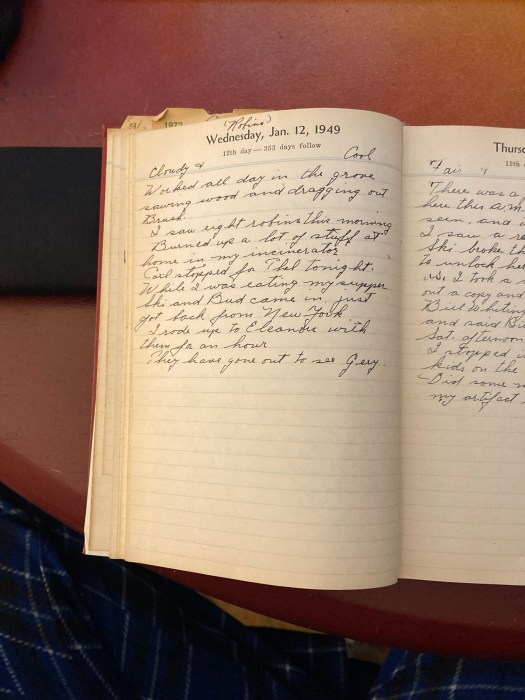 1932
"Robins"
Wednesday, Jan. 12, 1949
12th day—353 days follow
Cloudy & Cool
Worked all day in the grove
sawing wood and dragging out
Brush.
I saw eight robins this morning
Burned up a lot of stuff at
home in my incinerator
Carl stopped for Thel tonight.
While I was eating my supper
Ski and Bud came in, just
got back from New York.
I rode up to Eleanore with
them for an hour
They have gone out to see Gery.
Thurs
13th
Fair &
There was a
here this A.M.
seen, and a
I saw a re
Ski broke th
to unlock he
I took a
out a copy and
Bill Whiting
and said Bi
Sat. afternoon
I stopped
kids on the
Did some
my artifact